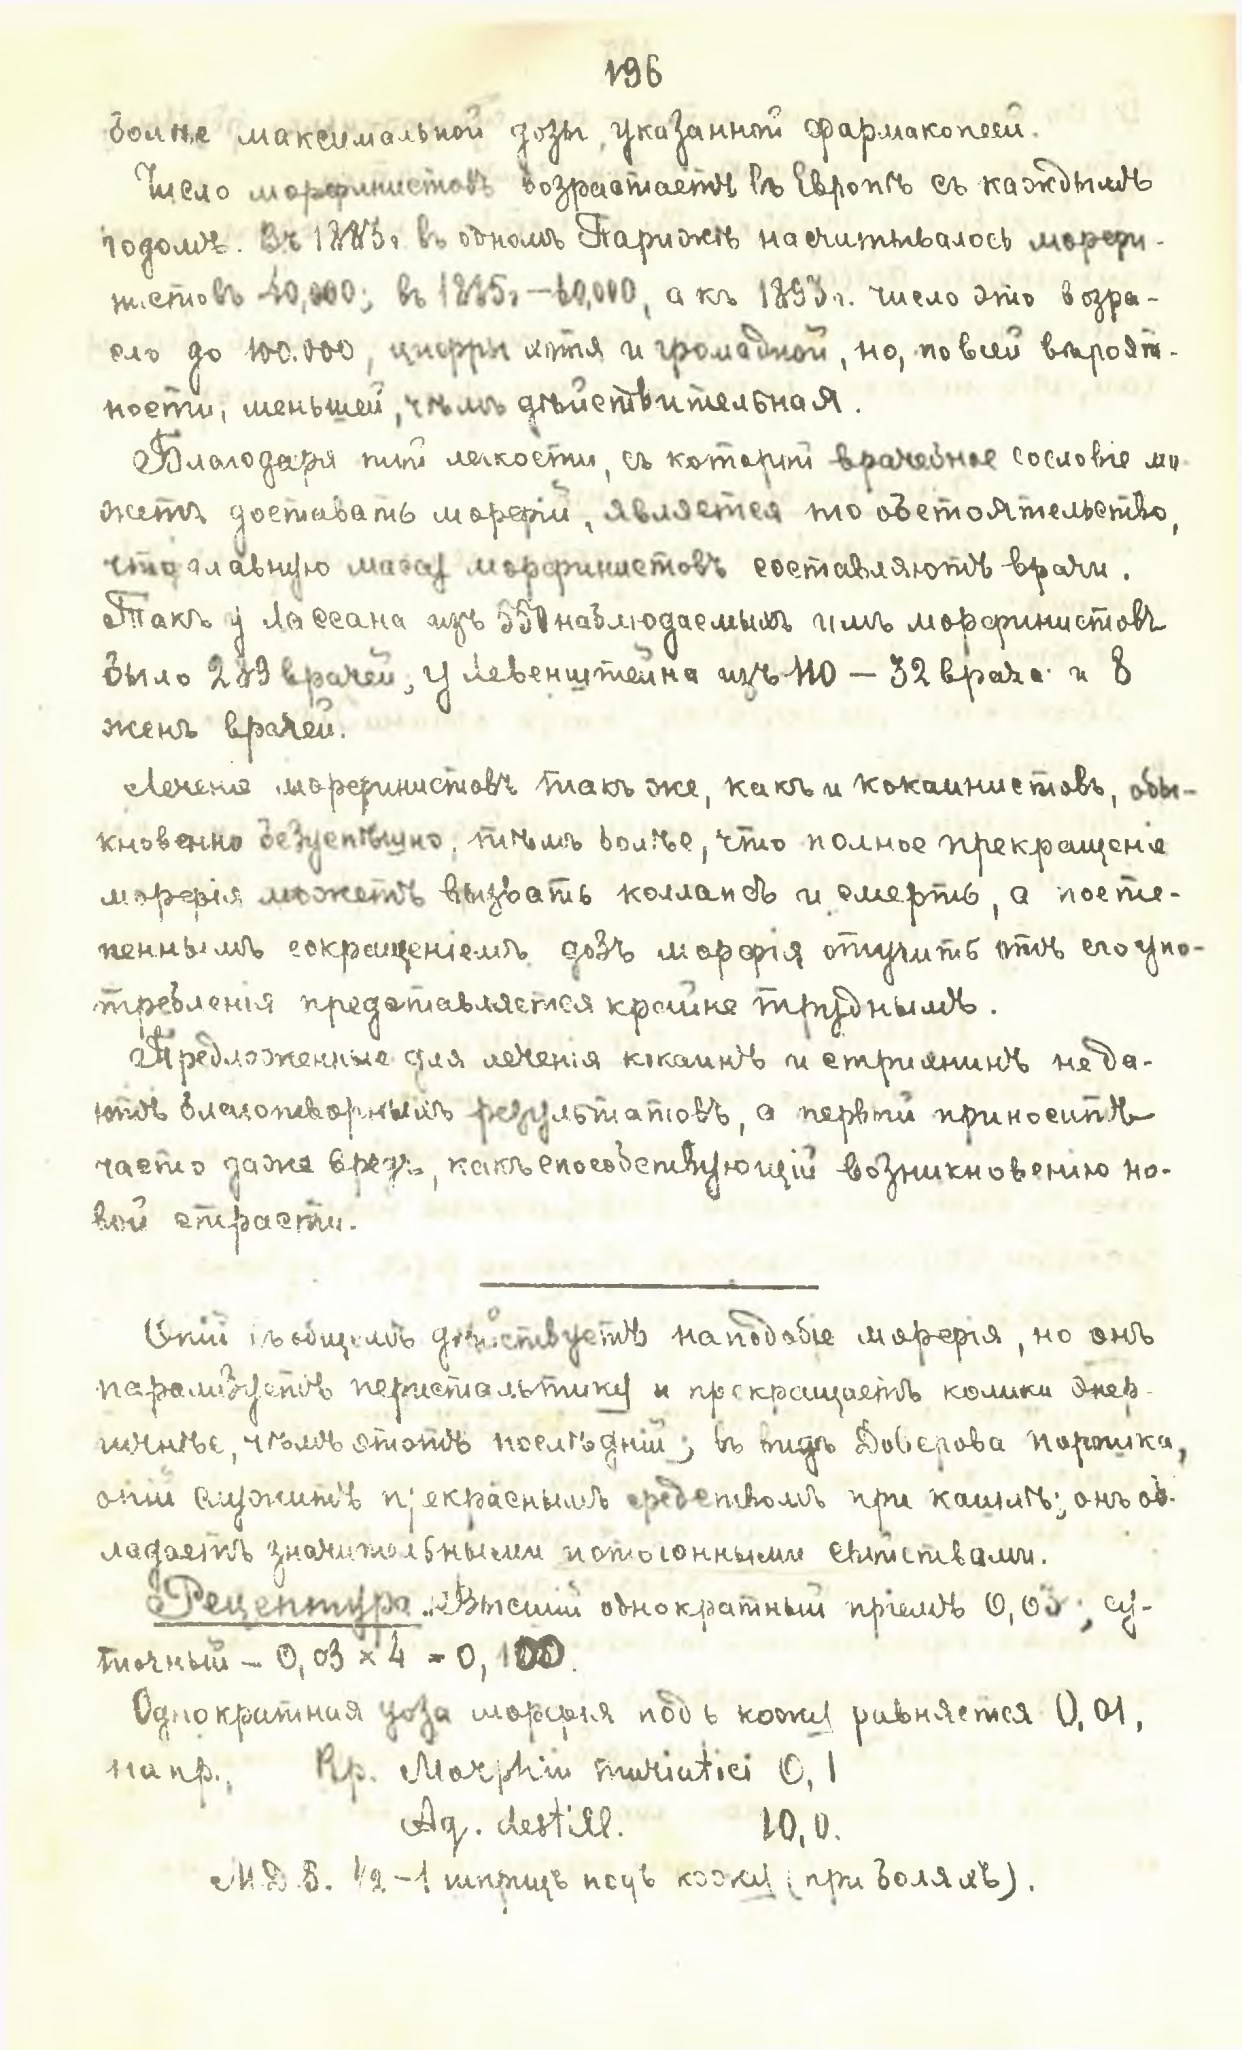 196
болѣе максимальной дозы, указанной фармакопеей.
Число морфинистовъ возрастаетъ въ Европѣ съ каждымъ
годомъ. Въ 1883г въ одномъ Парижѣ насчитывалось морфи-
нистовъ 40,000; въ 1885г – 60,000, а къ 1893г. число это возра-
сло до 100.000, цифры хотя и громадной, но, по всей вѣроят-
ности, меньшей, чѣмъ дѣйствительная.
Благодаря той легкости, съ которой врачебное сословіе мо
жетъ доставать морфій, является то обстоятельство,
что главную массу морфинистовъ составляютъ врачи.
Такъ у Лассана изъ 550 наблюдаемыхъ имъ морфинистовъ
было 289 врачей, у Левенштейна изъ 110 – 32 врача и 8
женъ врачей.
Леченіе морфинистовъ такъ же, какъ и кокаинистовъ, обы-
кновенно безуспѣшно, тѣмъ болѣе, что полное прекращеніе
морфія можетъ вызвать коллапсъ и смерть, а посте-
пеннымъ сокращеніемъ дозъ морфія отучить отъ его упо-
требленія представляется крайне труднымъ.
Предложенные для леченія кокаинъ и стрихнинъ не да-
ютъ благотворныхъ результатовъ, а первый приноситъ
часто даже вредъ, какъ способствующій возникновенію но-
вой страсти.
Опій въ общемъ дѣйствуетъ на подобіе морфія, но онъ
парализуетъ перистальтику и прекращаетъ колики энер-
гичнѣе, чѣмъ этотъ послѣдній; въ видѣ Доверова порошка,
опій служитъ прекраснымъ средствомъ при кашлѣ; онъ об-
ладаетъ значительными потогонными свойствами.
Рецептура. Высшій однократный пріемъ 0,03; су-
точный – 0,03 × 4 = 0,100.
Однократная доза морфія подъ кожу равняется 0,01,
напр., Rp. Morphii muriatici 0,1
Aq. destill. 10,0.
М.D.S. 1/2 – 1 шприцъ подъ кожу (при боляхъ).